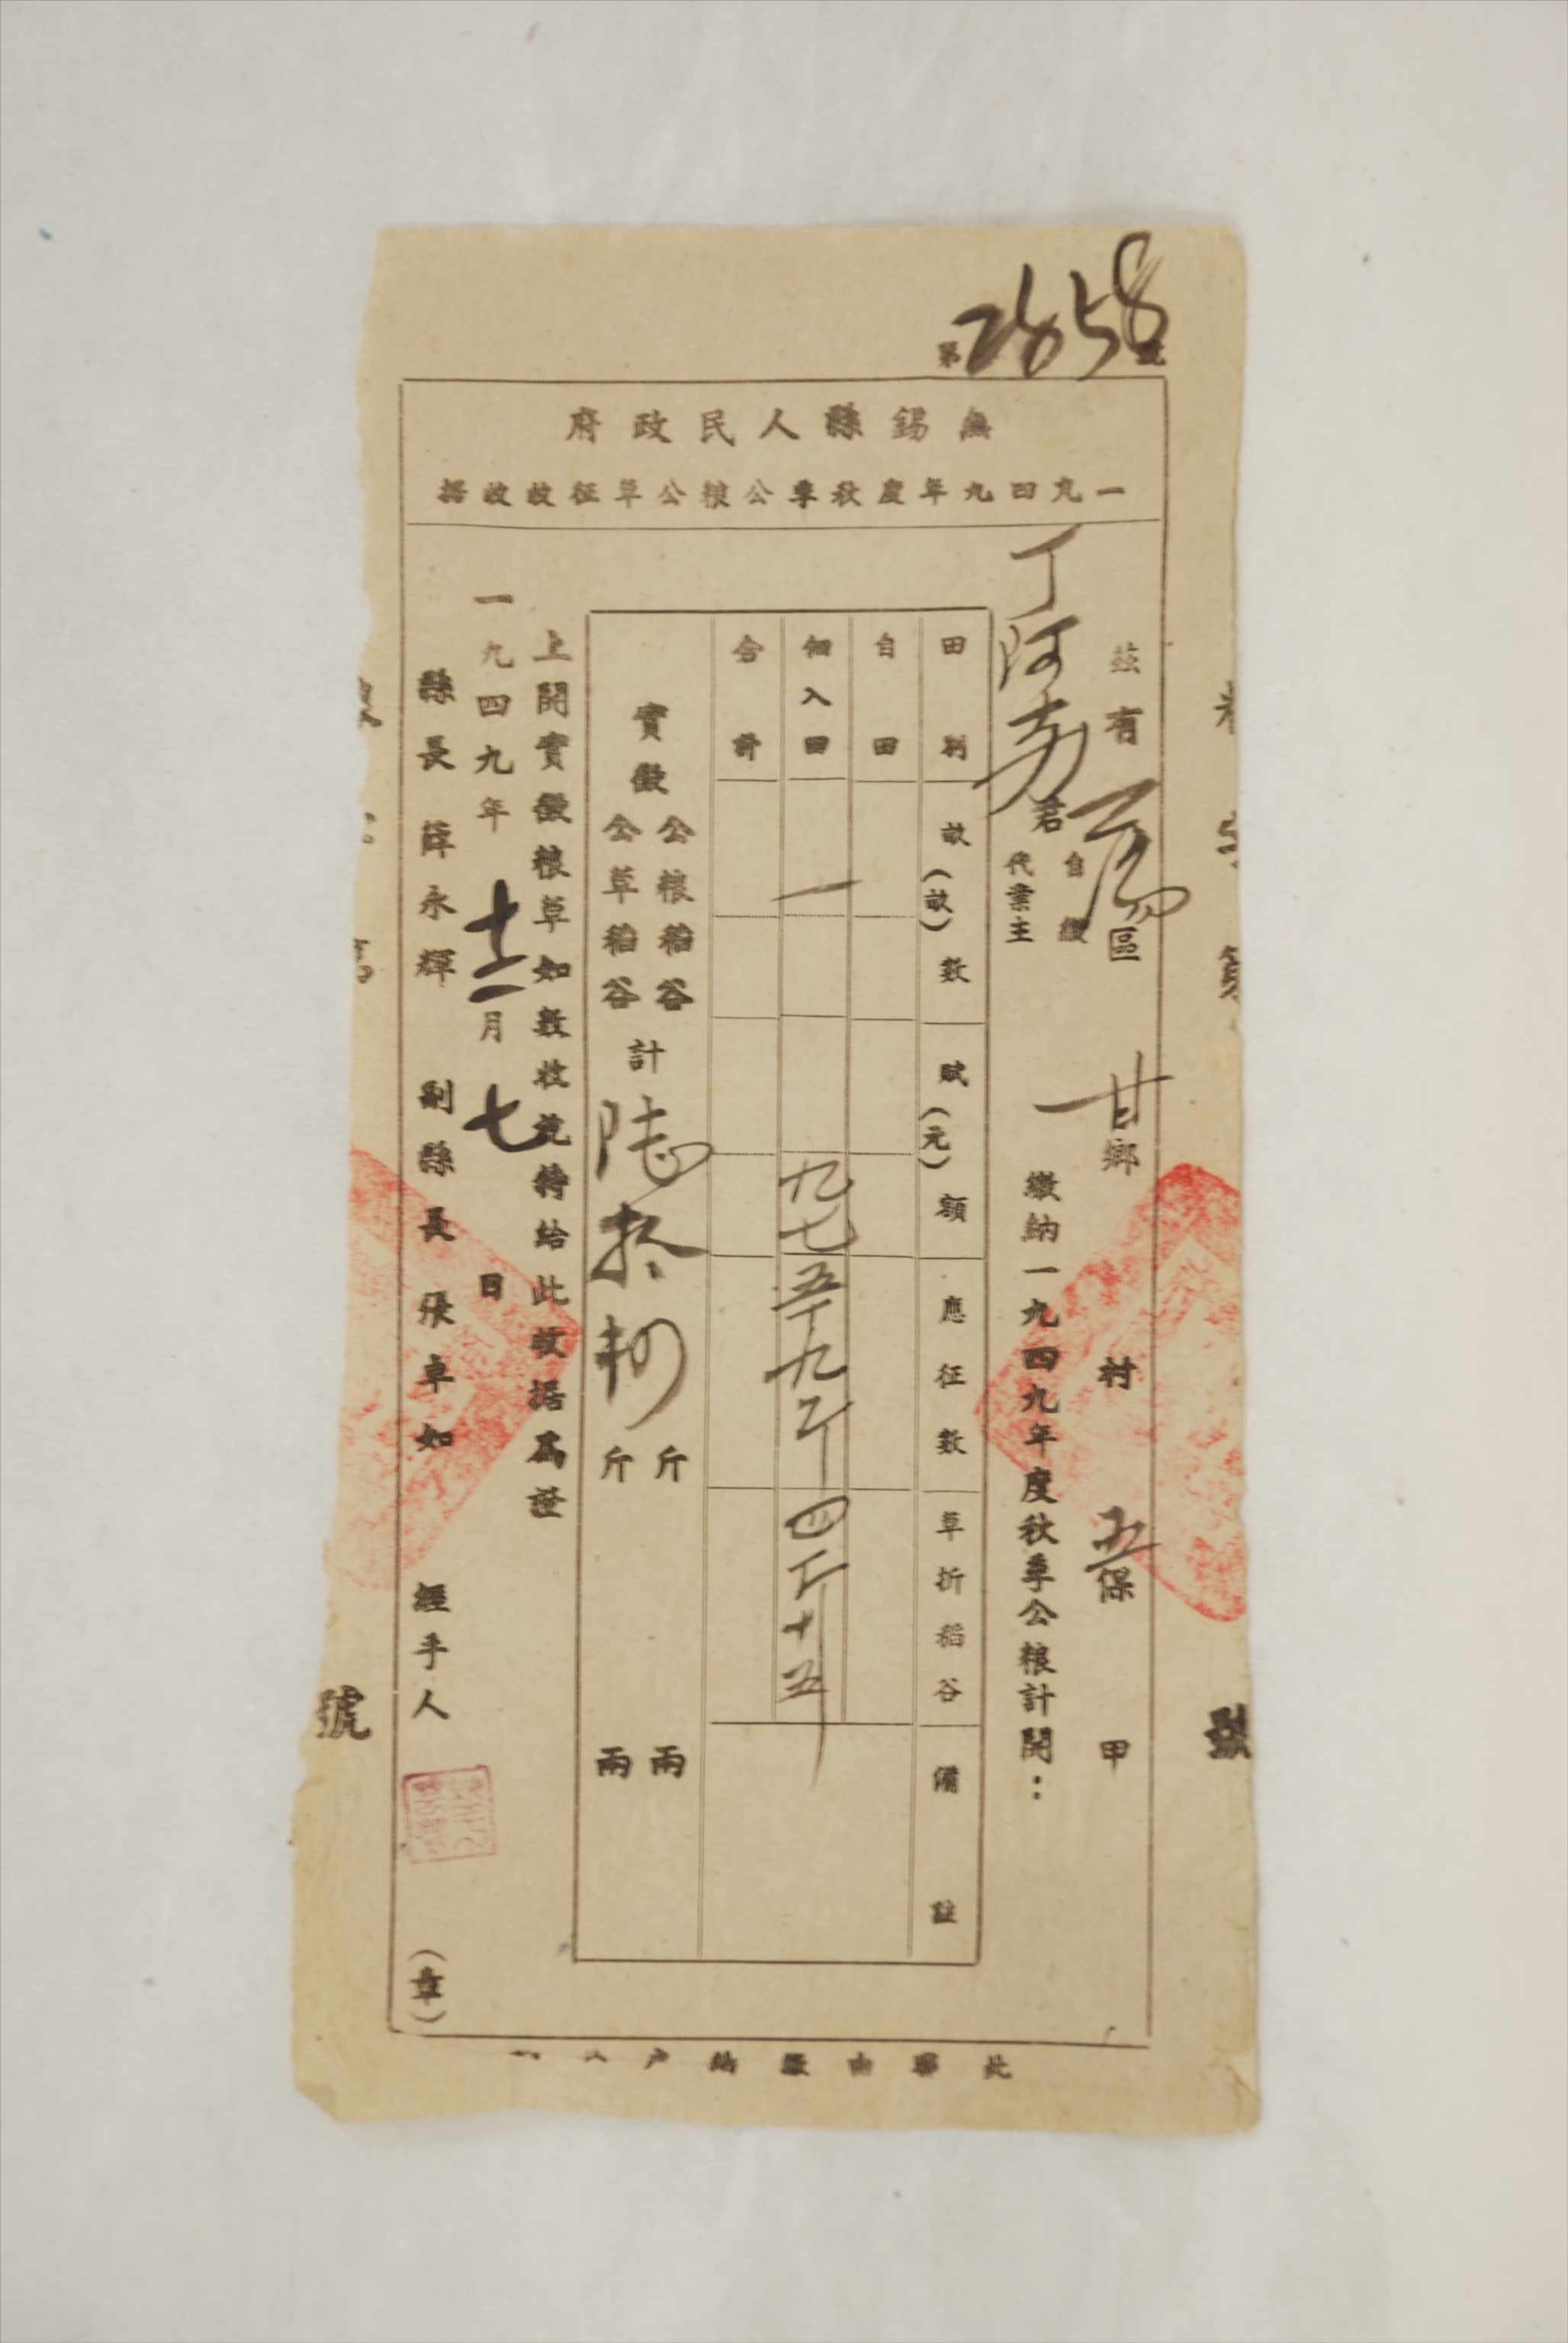 第2658號
無錫縣人民政府
一九四九年度秋季公糧公草征收收据
茲有區甘鄉村五保甲
丁阿君自繳代業主繳納一九四九年度秋季公粮計開：
田別畝(畝)數賦(元)額應征數草折稻谷備註
自田
佃入田一九七五斤九斤四斤十五
合計
實徵公粮稻谷公草稻谷計陸拾斤兩斤兩
上開實徵粮草如數收訖特給此收据為證
一九四九年十二月七日
縣長薛永輝副縣長張卓如經手人(章)
號
此聯由繳納戶